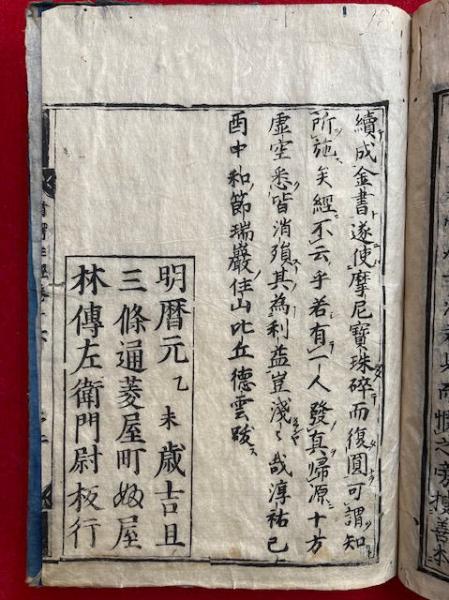 之旁搜善本
續成金書遂使摩尼寶珠碎而復圓可謂知
所施矣經不云乎若有一人發真歸源十方
虛空悉皆消殞其為利益豈淺々哉淳祐己
酉中和節瑞巖住山比丘德雲跋
明曆元乙未歲吉旦
三條通菱屋町婦屋
林傳左衛門尉板行